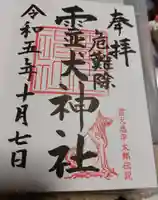 奉拝
危難除
霊犬神社
令和五年十月七日